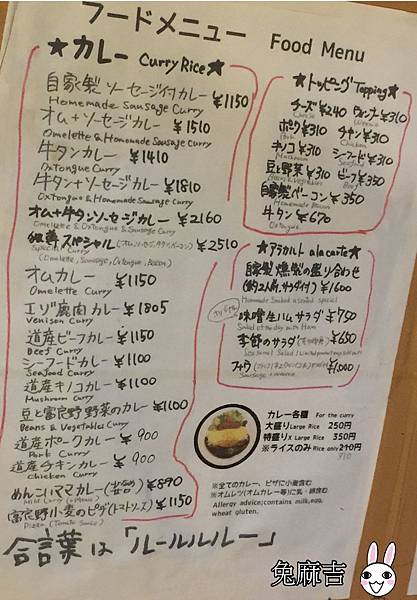 フードメニュー Food Menu
★カレー Curry Rice★
自家製ソーセージ付カレー ¥1150
Homemade Sausage Curry
オム+ソーセージカレー ¥1510
Omelette & Homemade Sausage Curry
牛タンカレー ¥1410
Oxtongue Curry
牛タン+ソーセージカレー ¥1810
Oxtongue & Homemade Sausage Curry
オム+牛タンソーセージカレー ¥2160
Omelette & Oxtongue & Sausage Curry
スペシャル(オム,ソーセージ,牛タン,ベーコン) ¥2510
Special Curry (Omelette, Sausage, Oxtongue, Bacon)
オムカレー ¥1150
Omelette Curry
エゾ鹿肉カレー ¥1805
Venison Curry
道産ビーフカレー ¥1150
Beef Curry
シーフードカレー ¥1100
Seafood Curry
道産キノコカレー ¥1100
Mushroom Curry
豆と富良野野菜のカレー ¥1100
Beans & Vegetables Curry
道産ポークカレー ¥900
Pork Curry
道産チキンカレー ¥900
Chicken Curry
めんこいママカレー ¥890
富良野小麦のピザ(トマトソース) ¥1150
Pizza (Tomato Sauce)
合言葉は「ルールルルー」
★トッピング Topping★
チーズ ¥240 ウィンナー ¥310
Cheese
ポーク ¥310 チキン ¥310
Pork Chicken
キノコ ¥310 シーフード ¥310
Mushroom Seafood
豆と野菜 ¥310 ビーフ ¥350
Beans & Vegetables Beef
自家製ベーコン ¥350
Homemade Bacon
牛タン ¥670
Oxtongue
★アラカルト a la carte★
自家製燻製の盛り合わせ
(約2人前,サラダ付) ¥1600
Homemade Smoked assorted special
味噌生ハムサラダ ¥750
Salad of the day with Ham
季節のサラダ ¥650
¥1,000
カレー各種 For the curry
大盛り Large Rice 250円
特盛り X Large Rice 350円
※ライスのみ Rice only 210円
310
※全てのカレー、ピザに小麦含む
※オムレツ(オムカレー等)に乳・卵含む
Allergy advice;contains milk,egg,
wheat gluten.
兔麻吉